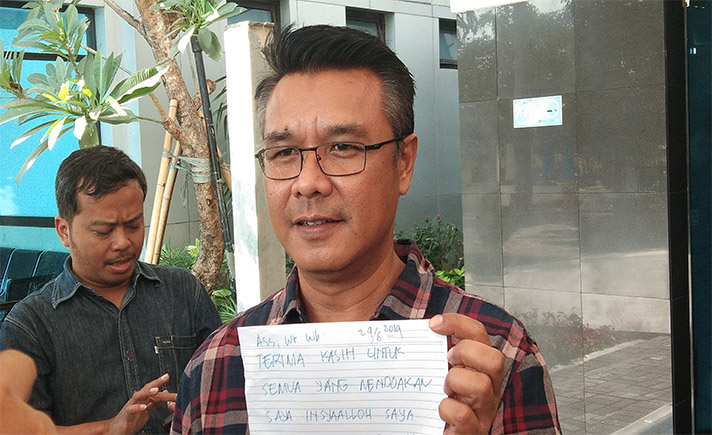 Ass, Wr Wb. 29/6 2019
TERIMA KASIH UNTUK
SEMUA YANG MENDOAKAN
SAYA INSYAALLOH SAYA